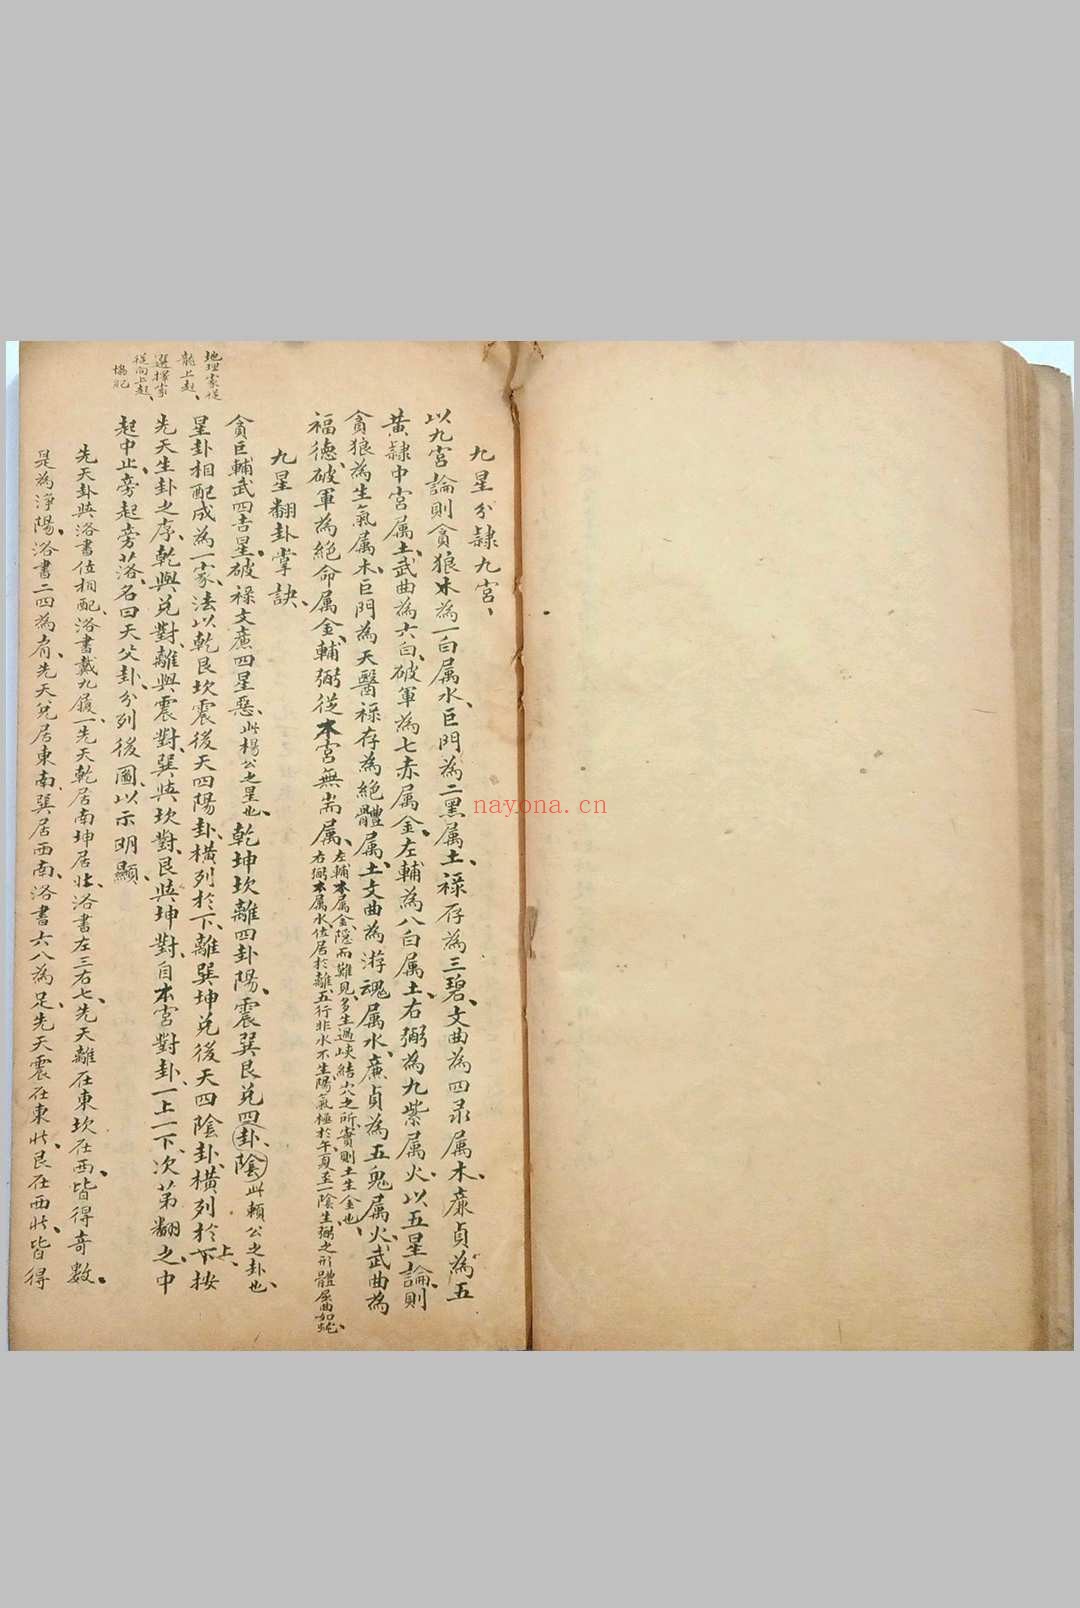 九星分隸九宮、
以九宮論則貪狼木為一白属水、巨門為二黑属土、祿存為三碧、文曲為四彔属木、廉貞為五
黃隸中宮属土、武曲為六白、破軍為七赤属金、左輔為八白属土、右弼為九紫属火、以五星論則
貪狼為生氣属木、巨門為天醫、祿存為絕體属土、文曲為游魂属水、廉貞為五鬼属火、武曲為
福德、破軍為絕命属金、輔弼從本宮無耑属、
左輔本属金、隱而難見、多生過峽結穴之所、實則土生金也、
右弼本属水、位居於離、五行非水不生、陽氣極於午、夏至一陰生、弼之形體屈曲如蛇、
九星翻卦掌訣、
貪巨輔武四吉星、破祿文廉四星惡、此楊公之星也、乾坤坎離四卦陽、震巽艮兌四卦陰此賴公之卦也、
星卦相配成為一家、法以乾艮坎震後天四陽卦、橫列於下、離巽坤兌後天四陰卦、橫列於下上、按
先天生卦之序、乾與兌對、離與震對、巽與坎對、艮與坤對、自本宮對卦、一上一下、次第翻之、中
起中止、旁起旁落、名曰天父卦、分列後圖、以示明顯、
地理家從
龍上起、
選擇家
從向上起、
協記
先天卦與洛書位相配、洛書戴九履一、先天乾居南坤居北、洛書左三右七、先天離在東坎在西、皆得奇數、
是為淨陽、洛書二四為肩、先天兌居東南、巽居西南、洛書六八為足、先天震在東北、艮在西北、皆得
nayona.cn